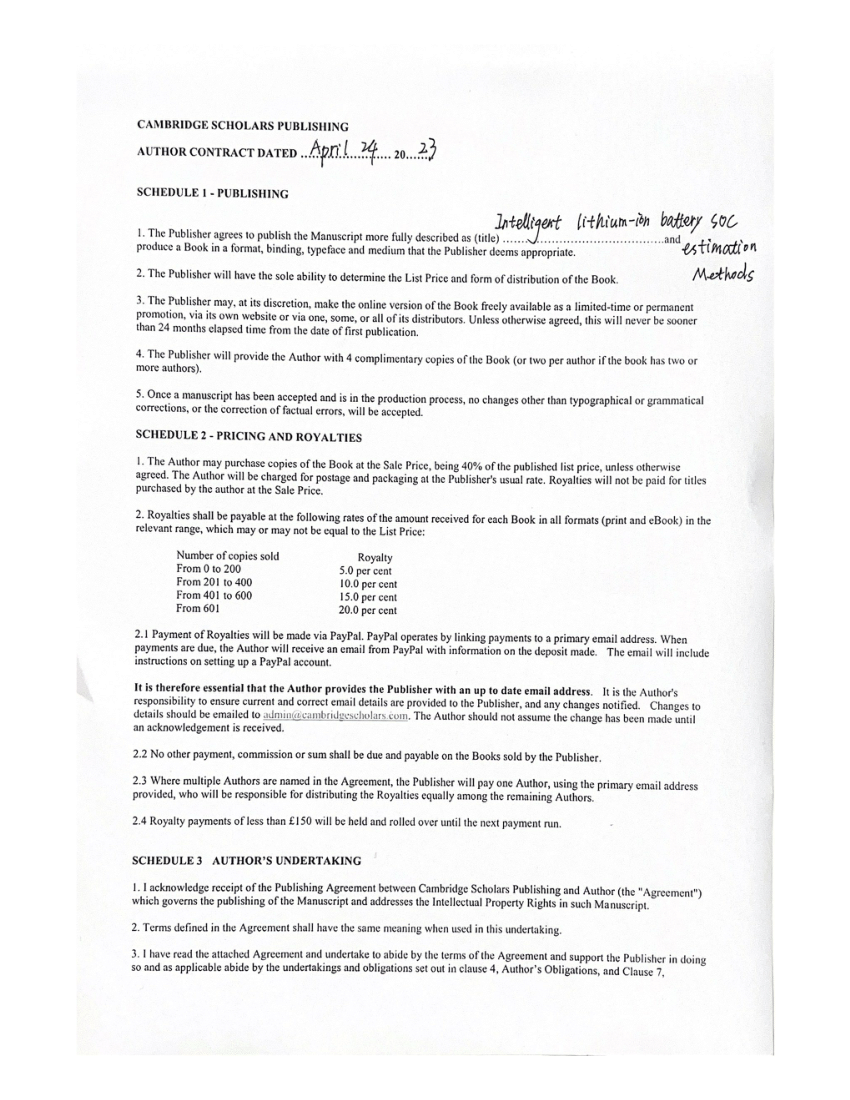 CAMBRIDGE SCHOLARS PUBLISHING
AUTHOR CONTRACT DATED ..April 24.... 20....23
SCHEDULE 1 - PUBLISHING
Intelligent lithium-ion battery SOC
1. The Publisher agrees to publish the Manuscript more fully described as (title) ..........................................and estimation
produce a Book in a format, binding, typeface and medium that the Publisher deems appropriate.
Methods
2. The Publisher will have the sole ability to determine the List Price and form of distribution of the Book.
3. The Publisher may, at its discretion, make the online version of the Book freely available as a limited-time or permanent
promotion, via its own website or via one, some, or all of its distributors. Unless otherwise agreed, this will never be sooner
than 24 months elapsed time from the date of first publication.
4. The Publisher will provide the Author with 4 complimentary copies of the Book (or two per author if the book has two or
more authors).
5. Once a manuscript has been accepted and is in the production process, no changes other than typographical or grammatical
corrections, or the correction of factual errors, will be accepted.
SCHEDULE 2 - PRICING AND ROYALTIES
1. The Author may purchase copies of the Book at the Sale Price, being 40% of the published list price, unless otherwise
agreed. The Author will be charged for postage and packaging at the Publisher's usual rate. Royalties will not be paid for titles
purchased by the author at the Sale Price.
2. Royalties shall be payable at the following rates of the amount received for each Book in all formats (print and eBook) in the
relevant range, which may or may not be equal to the List Price:
Number of copies sold Royalty
From 0 to 200 5.0 per cent
From 201 to 400 10.0 per cent
From 401 to 600 15.0 per cent
From 601 20.0 per cent
2.1 Payment of Royalties will be made via PayPal. PayPal operates by linking payments to a primary email address. When
payments are due, the Author will receive an email from PayPal with information on the deposit made. The email will include
instructions on setting up a PayPal account.
It is therefore essential that the Author provides the Publisher with an up to date email address. It is the Author's
responsibility to ensure current and correct email details are provided to the Publisher, and any changes notified. Changes to
details should be emailed to admin@cambridgescholars.com. The Author should not assume the change has been made until
an acknowledgement is received.
2.2 No other payment, commission or sum shall be due and payable on the Books sold by the Publisher.
2.3 Where multiple Authors are named in the Agreement, the Publisher will pay one Author, using the primary email address
provided, who will be responsible for distributing the Royalties equally among the remaining Authors.
2.4 Royalty payments of less than £150 will be held and rolled over until the next payment run.
SCHEDULE 3 AUTHOR'S UNDERTAKING
1. I acknowledge receipt of the Publishing Agreement between Cambridge Scholars Publishing and Author (the "Agreement")
which governs the publishing of the Manuscript and addresses the Intellectual Property Rights in such Manuscript.
2. Terms defined in the Agreement shall have the same meaning when used in this undertaking.
3. I have read the attached Agreement and undertake to abide by the terms of the Agreement and support the Publisher in doing
so and as applicable abide by the undertakings and obligations set out in clause 4, Author's Obligations, and Clause 7,